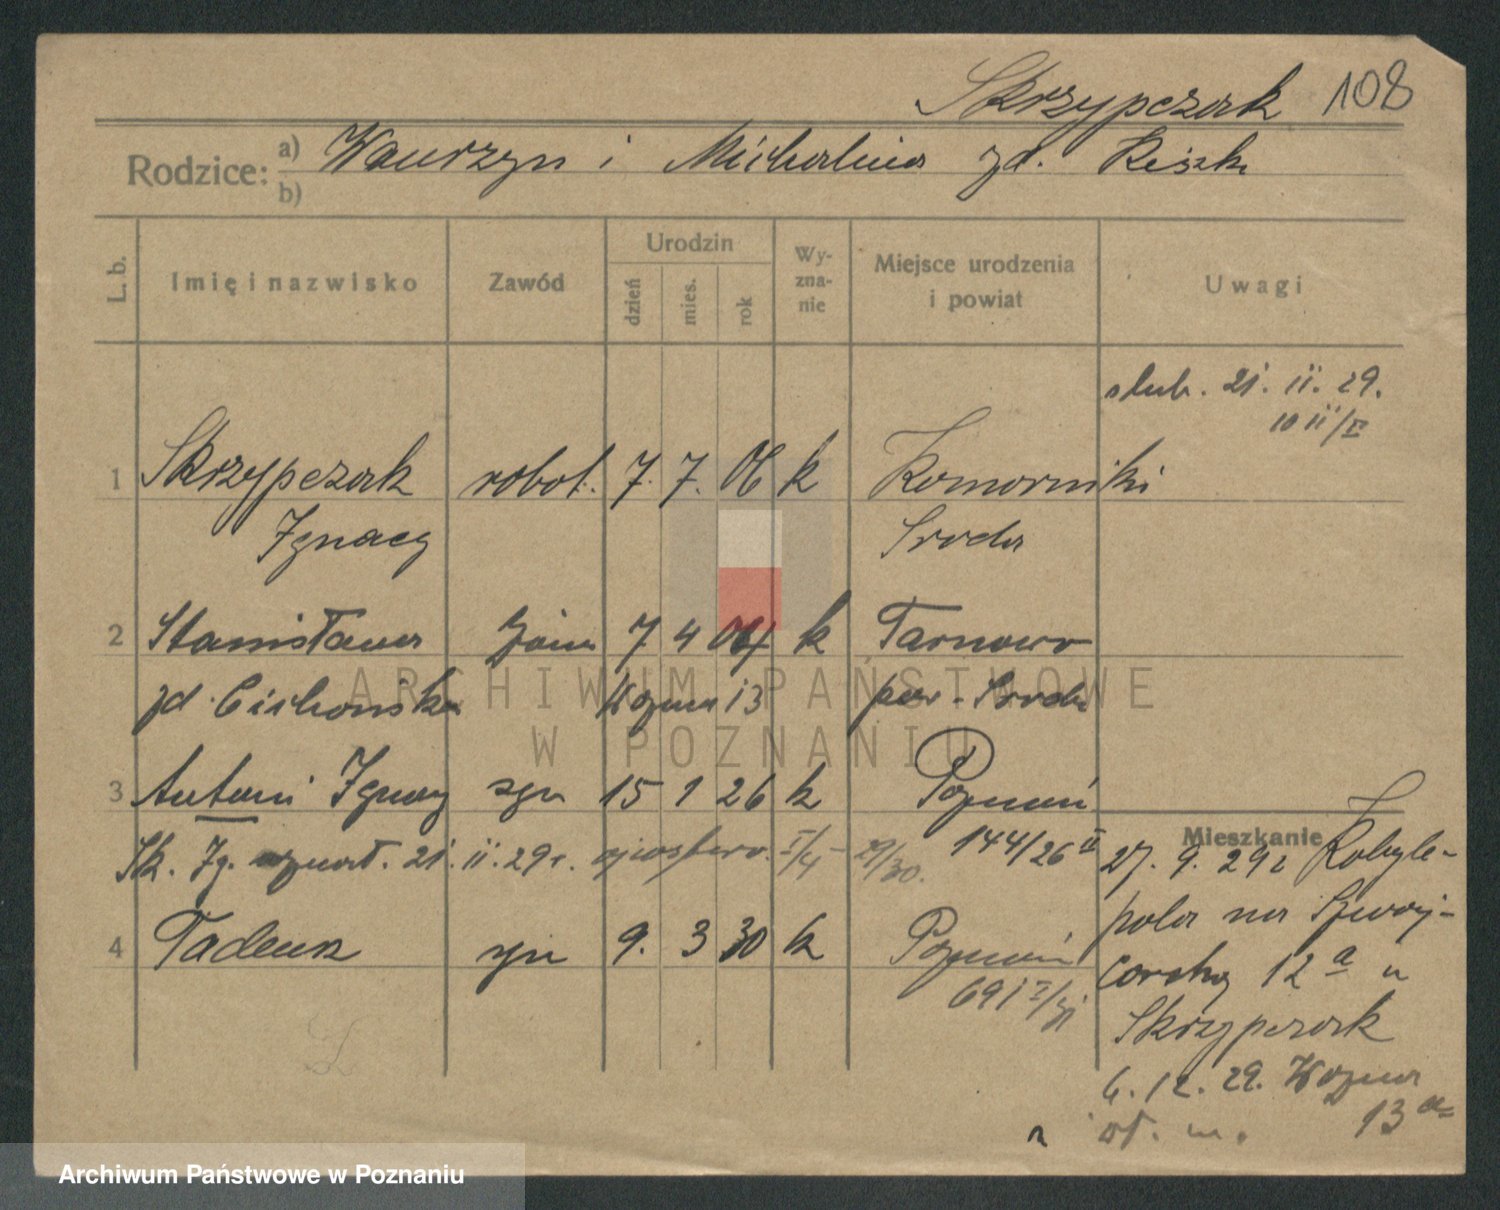 Skrzypczak 108
Rodzice: a) Wawrzyn i Michalina zd. Reszk
b)
L. b. Imię i nazwisko Zawód Urodzin dzień mies. rok Wyznanie Miejsce urodzenia i powiat Uwagi
ślub. 21. II. 29.
10 II/II
1 Skrzypczak robot. 7. 7. 06 k Komorniki
Ignacy Środa
2 Stanisława żona 7 4 06 k Tarnowo
zd. Cichońska Wozna 13 pow. Środa
3 Antoni Ignacy syn 15 1 26 k Poznań
144/26 II
Sk. Ig. uznał. 21. II. 29r. I/4 29/30.
4 Tadeusz syn 9. 3 30 k Poznań
691 I/
Mieszkanie
27. 9. 29r Kobyle-
pola na Szwaj-
carską 12 a u
Skrzypczak
6. 12. 29. Wozna
13 a
ARCHIWUM PAŃSTWOWE
W POZNANIU
Archiwum Państwowe w Poznaniu